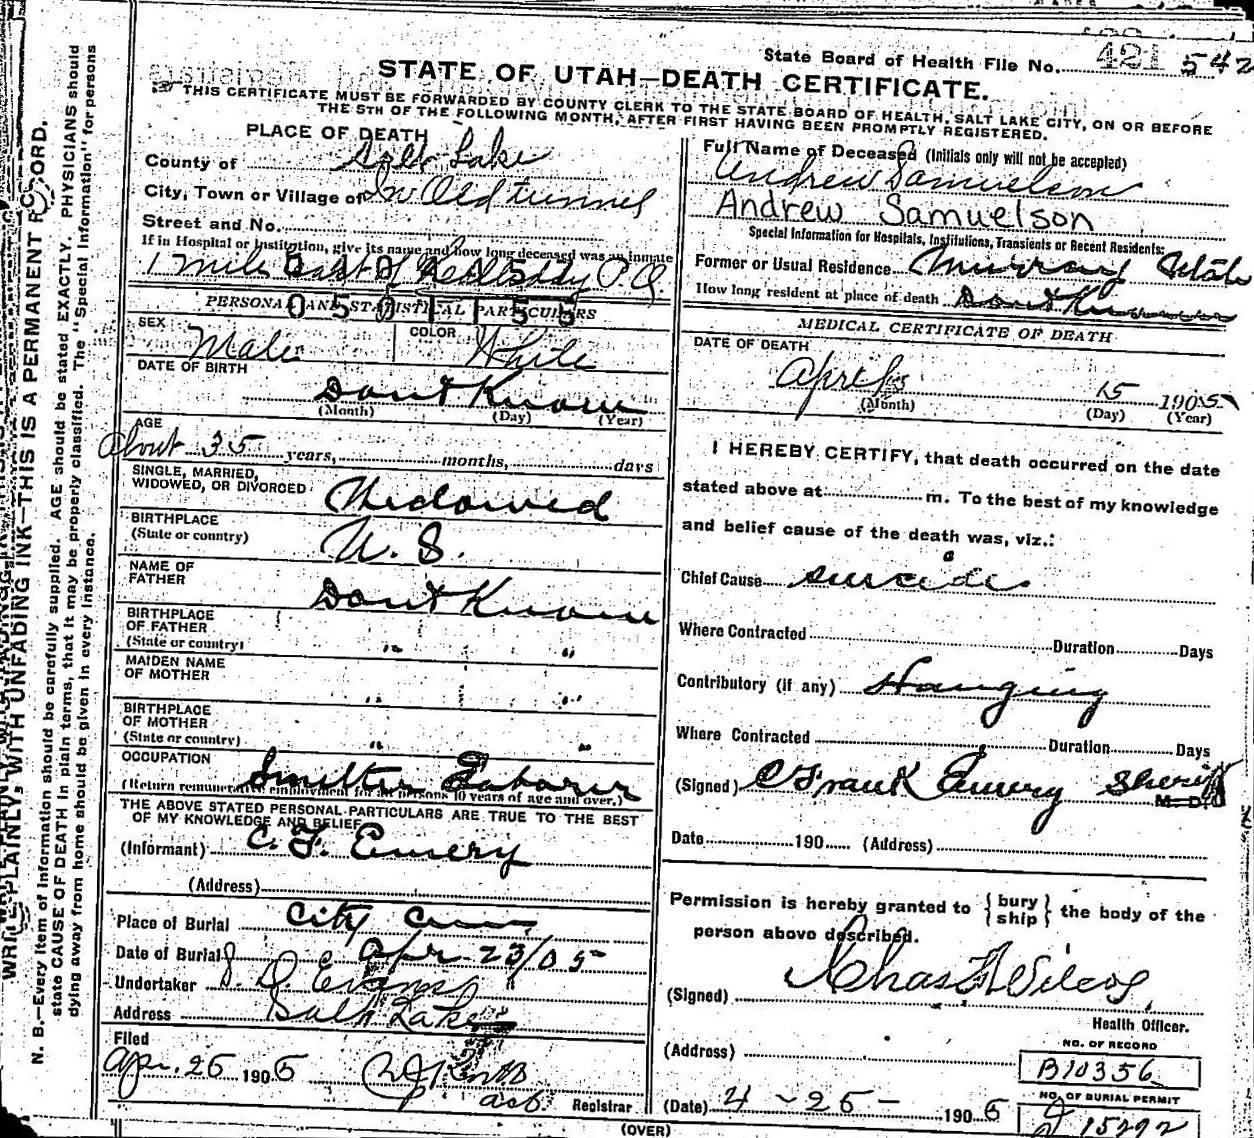 State Board of Health File No. 421 542
STATE OF UTAH—DEATH CERTIFICATE.
THIS CERTIFICATE MUST BE FORWARDED BY COUNTY CLERK TO THE STATE BOARD OF HEALTH, SALT LAKE CITY, ON OR BEFORE
THE 5TH OF THE FOLLOWING MONTH, AFTER FIRST HAVING BEEN PROMPTLY REGISTERED.
WRITE PLAINLY, WITH UNFADING INK—THIS IS A PERMANENT RECORD.
N. B.—Every item of information should be carefully supplied. AGE should be stated EXACTLY. PHYSICIANS should
state CAUSE OF DEATH in plain terms, that it may be properly classified. The "Special Information" for persons
dying away from home should be given in every instance.
PLACE OF DEATH
County of Salt Lake
City, Town or Village of In Old tunnel
Street and No.
If in Hospital or Institution, give its name and how long deceased was an inmate
1 mile East of P.O.
PERSONAL AND STATISTICAL PARTICULARS
SEX Male
COLOR White
DATE OF BIRTH
Dont Know
(Month) (Day) (Year)
AGE
about 35 years, months, days
SINGLE, MARRIED,
WIDOWED, OR DIVORCED Widowed
BIRTHPLACE
(State or country) U. S.
NAME OF
FATHER Dont Know
BIRTHPLACE
OF FATHER
(State or country) " "
MAIDEN NAME
OF MOTHER " "
BIRTHPLACE
OF MOTHER
(State or country) " "
OCCUPATION Smelter Laborer
(Return remunerative employment for all persons 10 years of age and over.)
THE ABOVE STATED PERSONAL PARTICULARS ARE TRUE TO THE BEST
OF MY KNOWLEDGE AND BELIEF
(Informant) C. F. Emery
(Address)
Place of Burial City Cem
Date of Burial Apr 23/05
Undertaker S. D. Evans
Address Salt Lake
Filed
Apr. 25 1905
Registrar
Full Name of Deceased (Initials only will not be accepted)
Andrew Samuelson
Andrew Samuelson
Special Information for Hospitals, Institutions, Transients or Recent Residents:
Former or Usual Residence Murray Utah
How long resident at place of death Dont Know
MEDICAL CERTIFICATE OF DEATH
DATE OF DEATH
April 15 1905
(Month) (Day) (Year)
I HEREBY CERTIFY, that death occurred on the date
stated above at m. To the best of my knowledge
and belief cause of the death was, viz.:
Chief Cause suicide
Where Contracted Duration Days
Contributory (if any) Hanging
Where Contracted Duration Days
(Signed) C Frank Emery Sheriff
M. D.
Date 190 (Address)
Permission is hereby granted to {bury
ship} the body of the
person above described.
(Signed) Chas Wilcox
Health Officer.
(Address)
NO. OF RECORD
B10356
NO. OF BURIAL PERMIT
15292
(Date) 4-25-1905
(OVER)